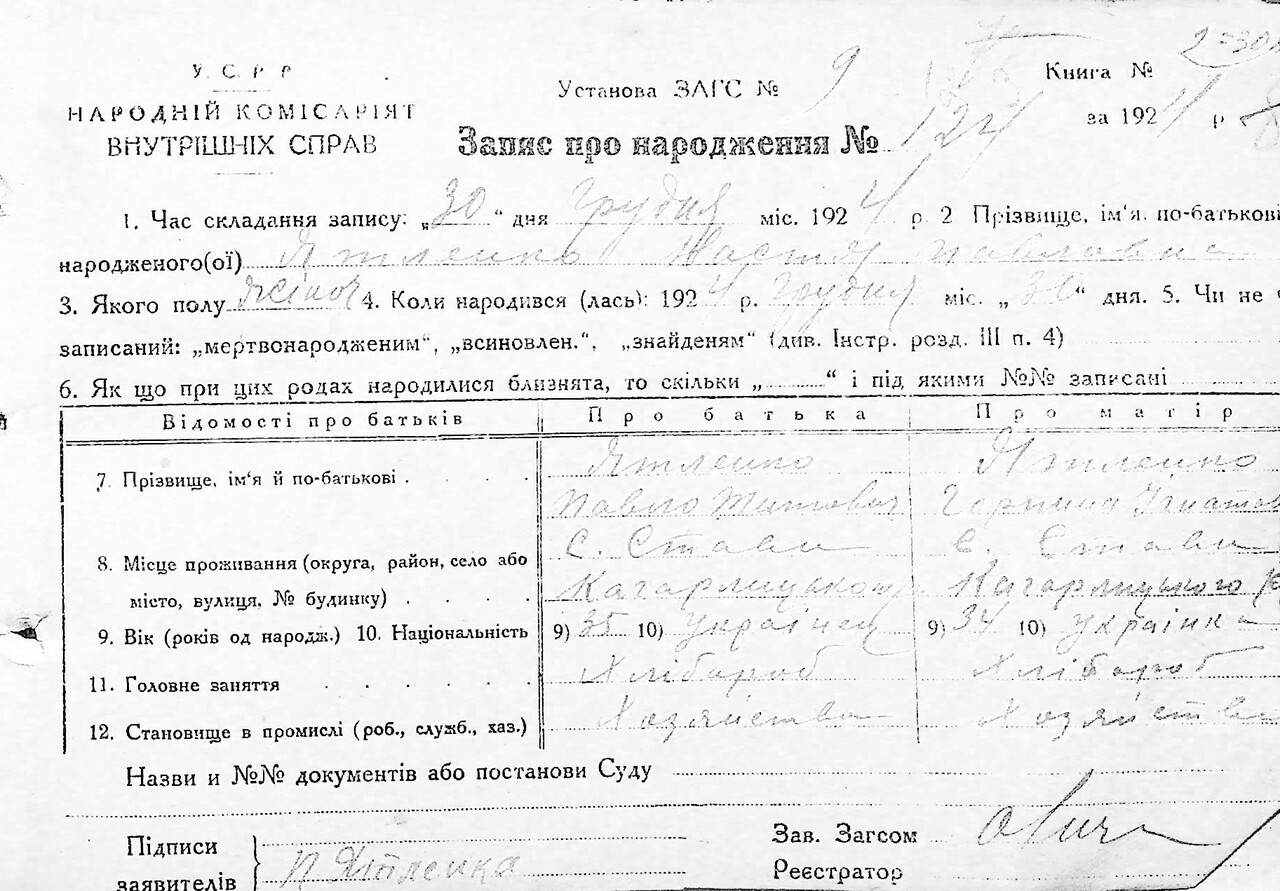 У. С. Р. Р
НАРОДНІЙ КОМІСАРІЯТ
ВНУТРІШНІХ СПРАВ
Установа ЗАГС № 9
Книга №
за 1924 р
Запис про народження № 124
1. Час складання запису: „30“ дня грудня міс. 1924 р. 2 Прізвище, ім'я, по-батькові
народженого(ої) Ятленко Настя Павловна
3. Якого полу жіноч 4. Коли народився (лась): 1924 р. Грудня міс. „30“ дня. 5. Чи не
записаний: „мертвонародженим“, „всиновлен.“, „знайденям“ (див. Інстр. розд. III п. 4)
6. Як що при цих родах народилися близнята, то скільки „ “ і під якими №№ записані
Відомості про батьків Про батька Про матір
7. Прізвище, ім'я й по-батькові . Ятленко Ятленко
Павло Титович Горпина Ігнатов
8. Місце проживання (округа, район, село або С. Стави с. Стави
місто, вулиця, № будинку) Кагарлицького Кагарлицького
9. Вік (років од народж.) 10. Національність 9) 35 10) Українец 9) 34 10) Українка
11. Головне заняття Хлібороб Хлібороб
12. Становище в промислі (роб., служб., хаз.) Хозяйства Хозяйства
Назви и №№ документів або постанови Суду
Підписи
заявителів П Ятленка
Зав. Загсом
Реєстратор